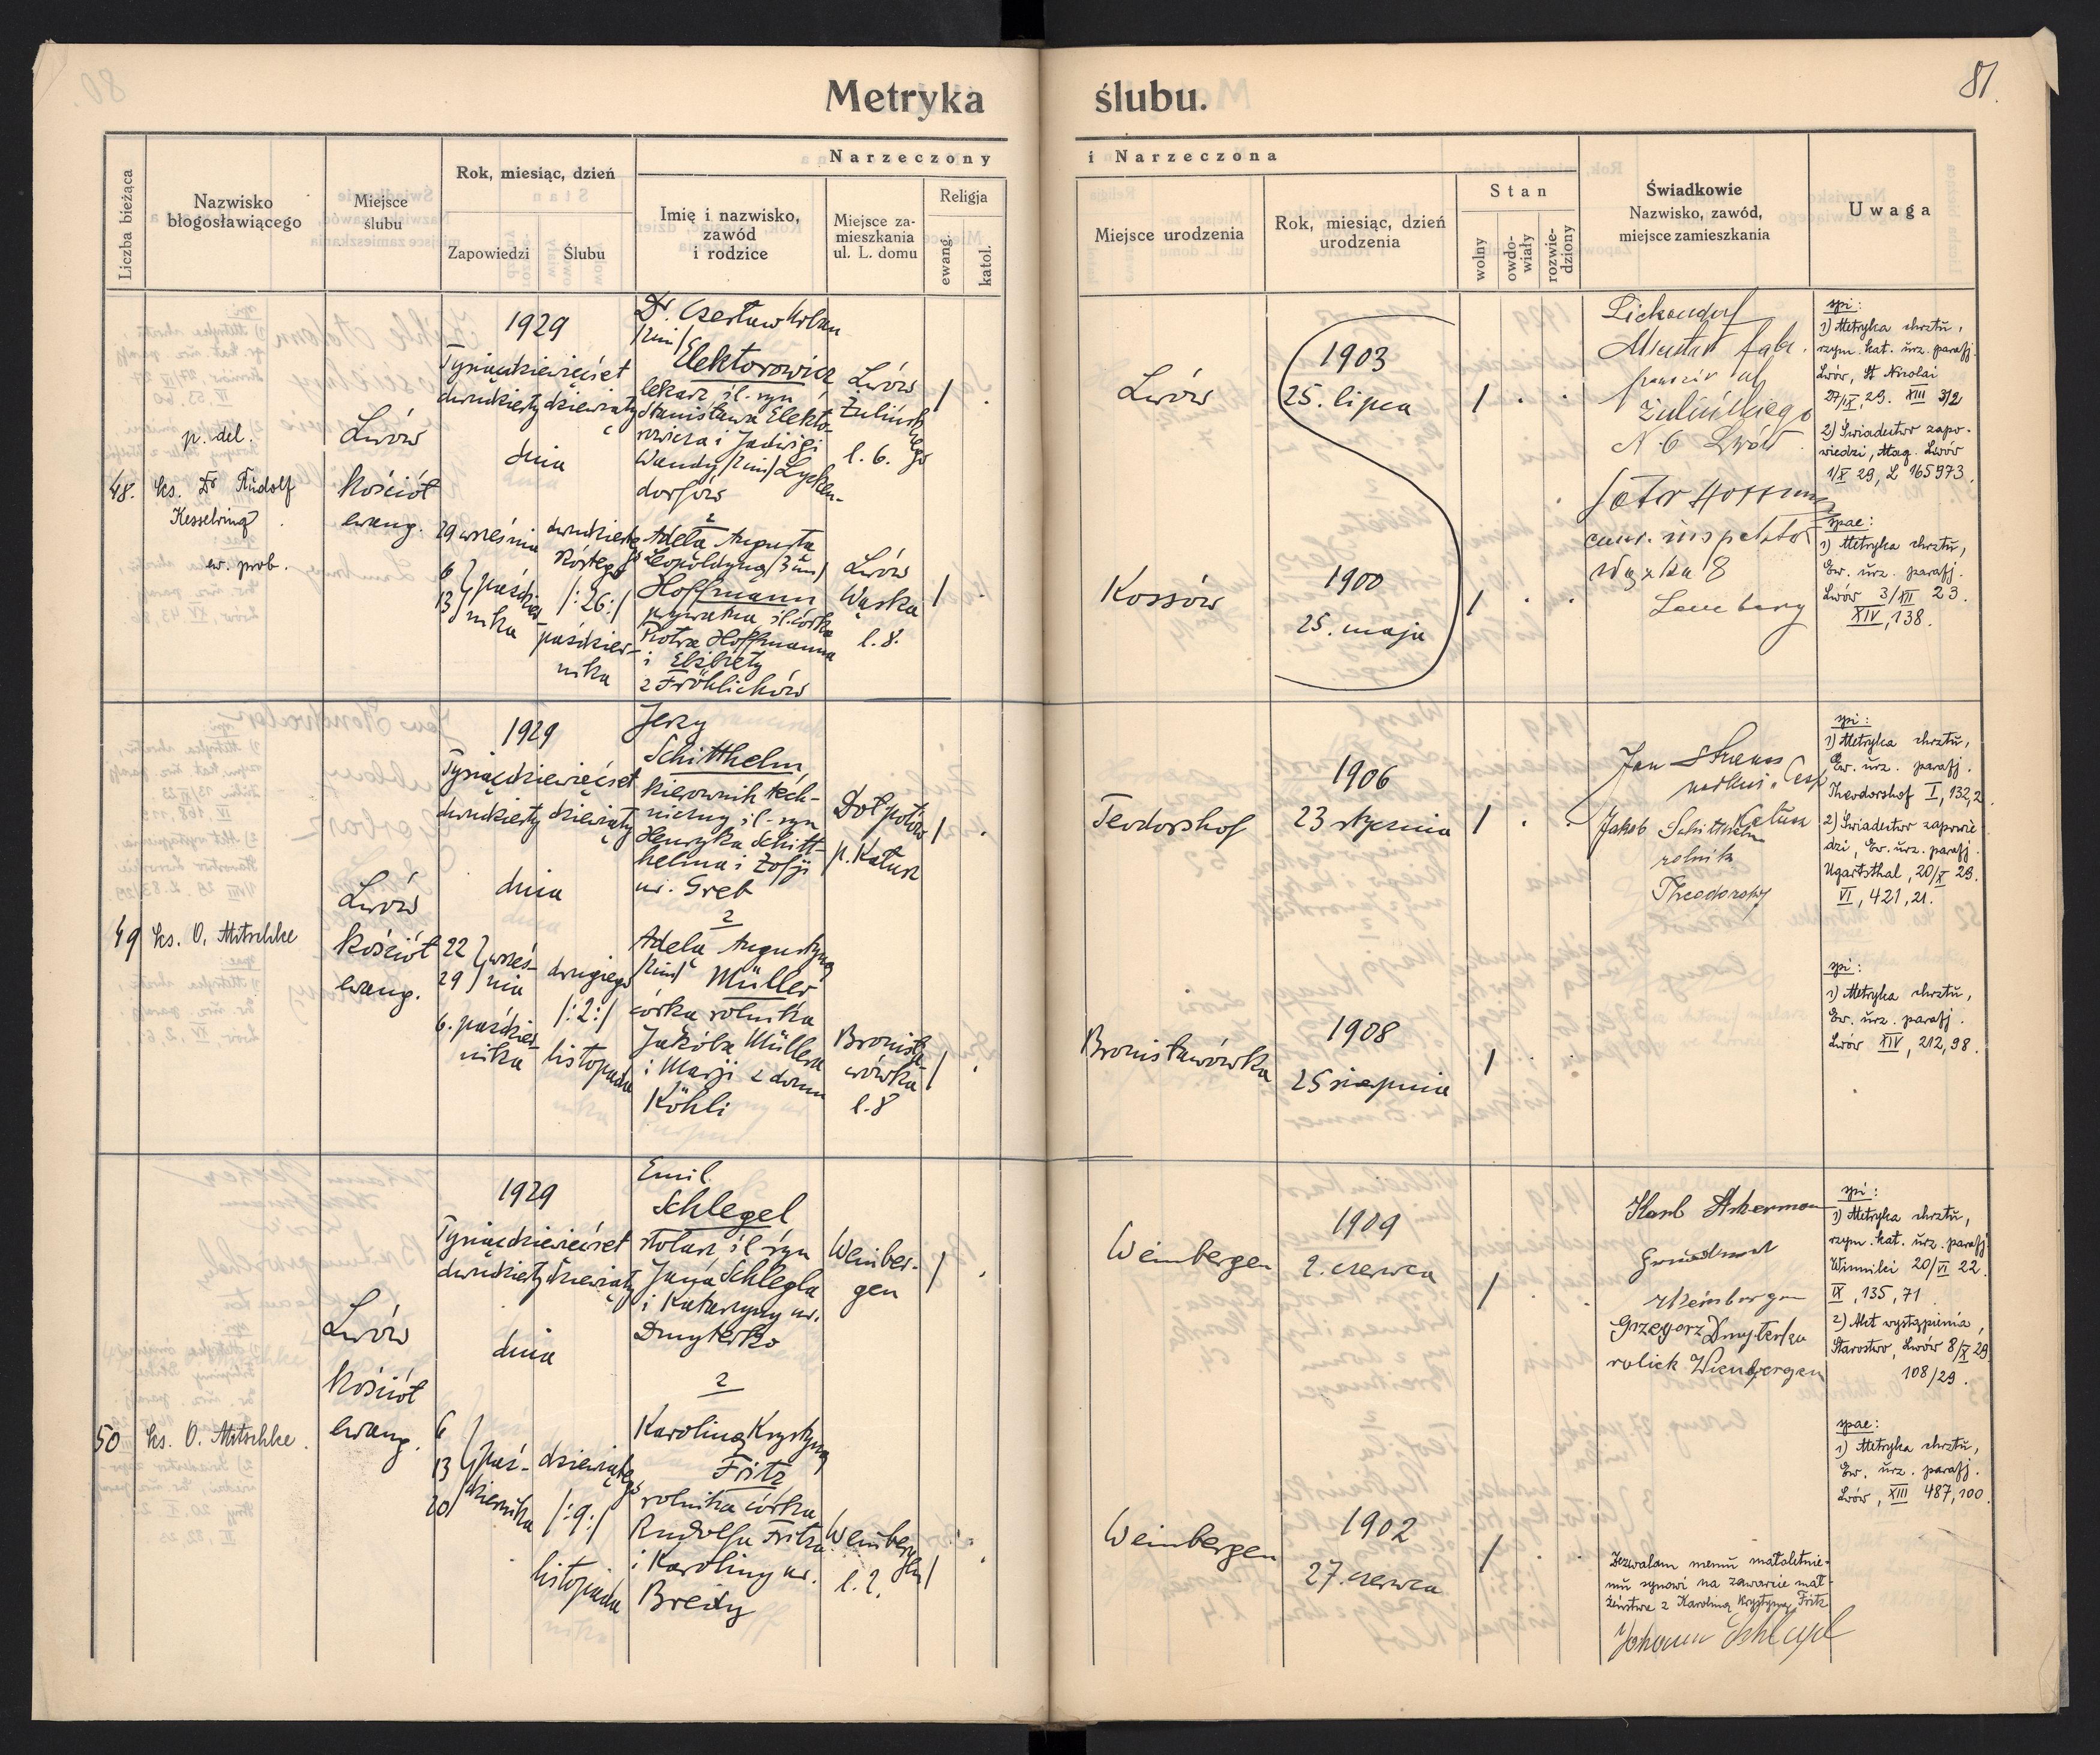 81.
Metryka ślubu.
Liczba bieżąca
Nazwisko
błogosławiącego
Miejsce
ślubu
Rok, miesiąc, dzień
Zapowiedzi
Ślubu
Narzeczony
i Narzeczona
Imię i nazwisko,
zawód
i rodzice
Miejsce za-
mieszkania
ul. L. domu
Religja
ewang.
katol.
Miejsce urodzenia
Rok, miesiąc, dzień
urodzenia
Stan
wolny
owdo-
wiały
rozwie-
dziony
Świadkowie
Nazwisko, zawód,
miejsce zamieszkania
Uwaga
48.
p. del.
ks. Dr Rudolf
Kesselring
ew. prob.
Lwów
kościół
ewang.
1929
Tysiącdziewięćset
dwudziesty dziewiąty
dnia
29 września
6
13 } paździer-
nika
dwudziestego
szóstego
/:26:/
paździer-
nika
Dr. Czesław
/2im/
Elektorowicz
lekarz śl. syn
Stanisława Elekto-
rowicza i Jadwigi
Wandy /2im/ Lycken-
dorfów
z
Adelą Augustą
Leopoldyną /3im/
Hoffmann
prywatna, śl. córka
Piotra Hoffmanna
i Elżbiety
z Fröhlichów
Lwów
Żulińskiego
l. 6.
Lwów
Wąska
l. 8.
/ .
/ .
Lwów
Kossów
1903
25. lipca
1900
25. maja
/ . .
/ . .
Żulińskiego
N 6 Lwów
Wązka 8
Lemberg
spi:
1) Metryka chrztu,
rzym. kat. urz. parafj.
Lwów, St Nicolai
27/IX, 29. XIII 312
2) Świadectwo zapo-
wiedzi, Mag. Lwów
1/X 29, L 165973.
spae:
1) Metryka chrztu,
Ew. urz. parafj.
Lwów 3/XII 23.
XIV, 138.
49
ks. O. Mitschke
Lwów
kościół
ewang.
1929
Tysiącdziewięćset
dwudziesty dziewiąty
dnia
22 } wrześ-
29 } nia
6. paździer-
nika
drugiego
/:2:/
listopada
Jerzy
Schitthelm
kierownik tech-
niczny śl. syn
Henryka Schitt-
helma i Zofji
ur. Greb
z
Adelą Augustyną
/2im/
Müller
córka rolnika
Jakóba Müllera
i Marji z domu
Köhli
Dołpotów
p. Kałusz
Bronisła-
wówka
l. 8
/ .
/ .
Teodorshof
Bronisławówka
1906
23 stycznia
1908
25 sierpnia
/ . .
/ . .
Jan Strauss
Kałusz
Jakob Schitthelm
rolnik
Theodorshof
spi:
1) Metryka chrztu,
Ew. urz. parafj.
Theodorshof I, 132,2.
2) Świadectwo zapowie
dzi, Ew. urz. parafj.
Ugartsthal, 20/X 29.
VI, 421, 21.
spi:
1) Metryka chrztu,
Ew. urz. parafj.
Lwów XIV, 212, 98.
50
ks. O. Mitschke.
Lwów
kościół
ewang.
1929
Tysiącdziewięćset
dwudziesty dziewiąty
dnia
6
13 } paź-
20 } dziernika
dziewiątego
/:9:/
listopada
Emil
Schlegel
stolarz śl. syn
Jana Schlegla
i Katarzyny ur.
Dmyterko
z
Karoliną Krystyną
Fritz
rolnika córka
Rudolfa Fritza
i Karoliny ur.
Bredy
Weinber-
gen
Weinbergen
l. 2.
/ .
/ .
Weinbergen
Weinbergen
1909
2. czerwca
1902
27. czerwca
/ . .
/ . .
Karl Akerman
Weinbergen
Grzegorz Dmyterko
rolick Weinbergen
Zezwalam memu małoletnie-
mu synowi na zawarcie mał-
żeństwa z Karoliną Krystyną Fritz
Johann Schlegel
spi:
1) Metryka chrztu,
rzym. kat. urz. parafj
Winniki 20/VI 22.
IX, 135, 71
2) Akt wystąpienia,
Starostwo, Lwów 8/X 29.
108/29.
spae:
1) Metryka chrztu,
Ew. urz. parafj.
Lwów, XIII 487, 100.